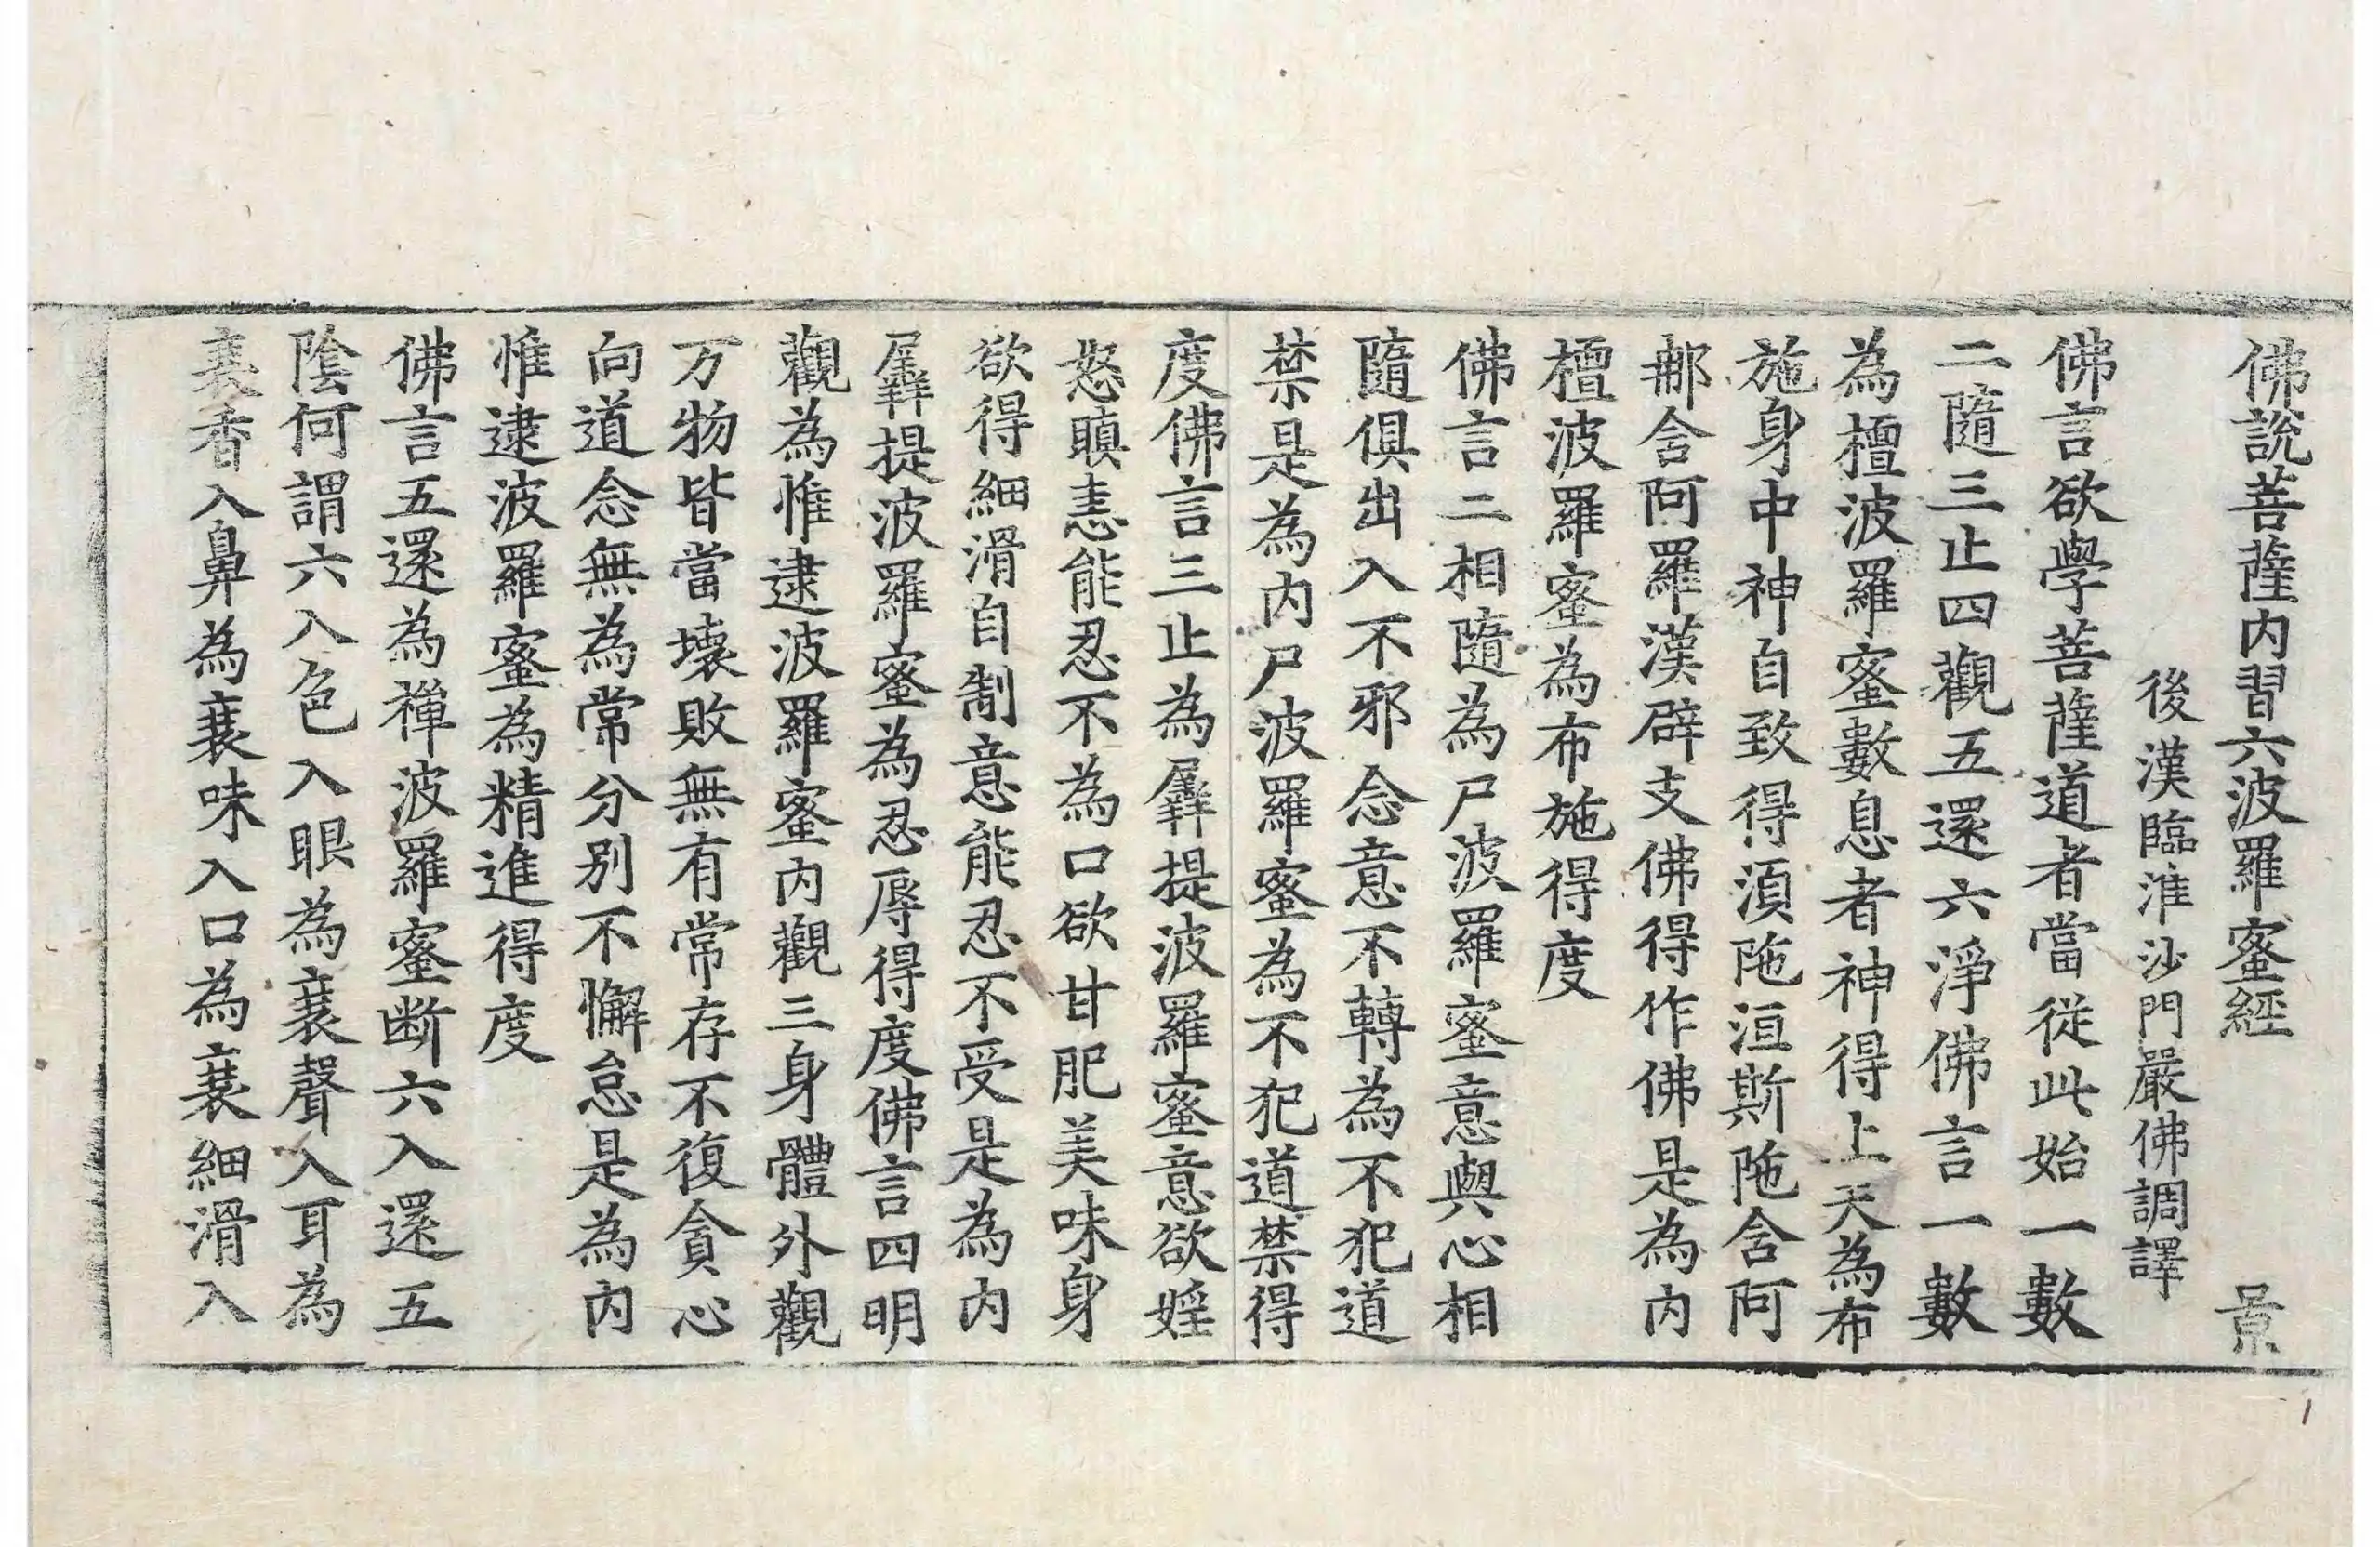 佛說菩薩內習六波羅蜜經 景
後漢臨淮沙門嚴佛調譯
佛言欲學菩薩道者當從此始一數
二隨三止四觀五還六淨佛言一數
為檀波羅蜜數息者神得上天為布
施身中神自致得湏陁洹斯陁含阿
那含阿羅漢辟支佛得作佛是為內
檀波羅蜜為布施得度
佛言二相隨為尸波羅蜜意與心相
隨俱出入不邪念意不轉為不犯道
禁是為內尸波羅蜜為不犯道禁得
度佛言三止為羼提波羅蜜意欲婬
怒瞋恚能忍不為口欲甘肥美味身
欲得細滑自制意能忍不受是為內
羼提波羅蜜為忍辱得度佛言四明
觀為惟逮波羅蜜內觀三身體外觀
万物皆當壞敗無有常存不復貪心
向道念無為常分別不懈怠是為內
惟逮波羅蜜為精進得度
佛言五還為禪波羅蜜断六入還五
陰何謂六入色入眼為衰聲入耳為
衰香入鼻為衰味入口為衰細滑入